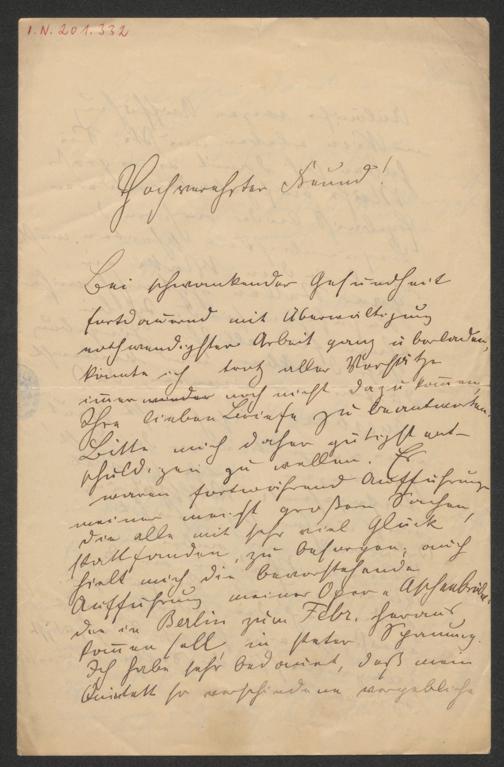 I.N. 201.332
Hochverehrter Freund!
Bei schwankender Gesundheit
fortdauernd mit Überwältigung
nothwendigster Arbeit ganz überladen,
konnte ich trotz aller Vorsätze
immer noch nicht dazu kommen,
Ihre lieben Briefe zu beantworten.
Bitte mich daher gütigst ent-
schuldigen zu wollen. Es
waren fortwährend Aufführungen
meiner meist großen Sachen,
die alle mit sehr viel Glück
stattfanden, zu besorgen; auch
hielt mich die bevorstehende
Aufführung meiner Oper
die in Berlin zum Febr. heraus
kommen soll, in steter Spannung.
Ich habe sehr bedauert, daß mein
Quintett so verschiedene vergebliche